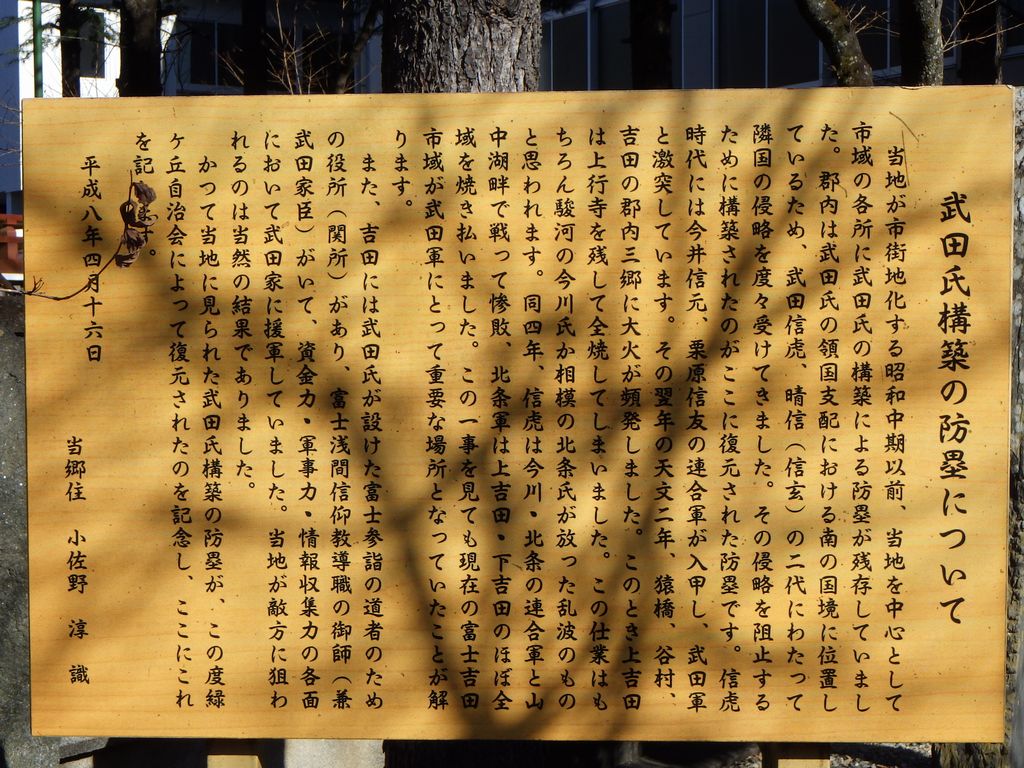 武田氏構築の防塁について
当地が市街地化する昭和中期以前、当地を中心として
市域の各所に武田氏の構築による防塁が残存していまし
た。郡内は武田氏の領国支配における南の国境に位置し
ているため、武田信虎、晴信（信玄）の二代にわたって
隣国の侵略を度々受けてきました。その侵略を阻止する
ために構築されたのがここに復元された防塁です。信虎
時代には今井信元、栗原信友の連合軍が入甲し、武田軍
と激突しています。その翌年の天文二年、猿橋、谷村、
吉田の郡内三郷に大火が頻発しました。このとき上吉田
は上行寺を残して全焼してしまいました。この仕業はも
ちろん駿河の今川氏か相模の北条氏が放った乱波のもの
と思われます。同四年、信虎は今川・北条の連合軍と山
中湖畔で戦って惨敗、北条軍は上吉田・下吉田のほぼ全
域を焼き払いました。この一事を見ても現在の富士吉田
市域が武田軍にとって重要な場所となっていたことが解
ります。
また、吉田には武田氏が設けた富士参詣の道者のため
の役所（関所）があり、富士浅間信仰教導職の御師（兼
武田家臣）がいて、資金力・軍事力・情報収集力の各面
において武田家に援軍していました。当地が敵方に狙わ
れるのは当然の結果でありました。
かつて当地に見られた武田氏構築の防塁が、この度緑
ケ丘自治会によって復元されたのを記念し、ここにこれ
を記す。
平成八年四月十六日
当郷住 小佐野 淳 識